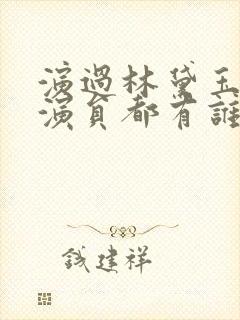 演過林黛玉
演員都有誰
錢建祥